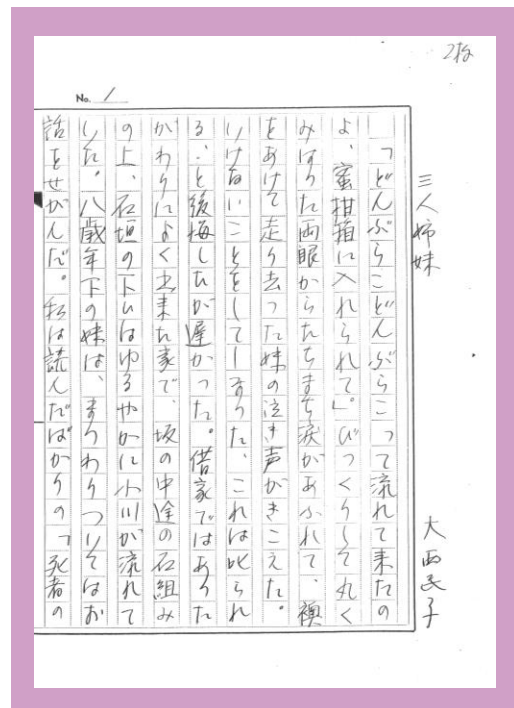 2枚
No. 1
三人姉妹　大西民子
「どんぶらこどんぶらこって流れて来たの
よ、蜜柑箱に入れられて」。びっくりして丸く
みはった両眼からたちまち涙があふれて、襖
をあけて走り去った妹の泣き声がきこえた。
いけないことをしてしまった、これは叱られ
る、と後悔したが遅かった。借家ではあった
がかわりによく出来た家で、坂の中途の石組み
の上、石垣の下にはゆるやかに小川が流れて
いた。八歳年下の妹は、まつわりついてはお
話をせがんだ。私は読んだばかりの「死者の